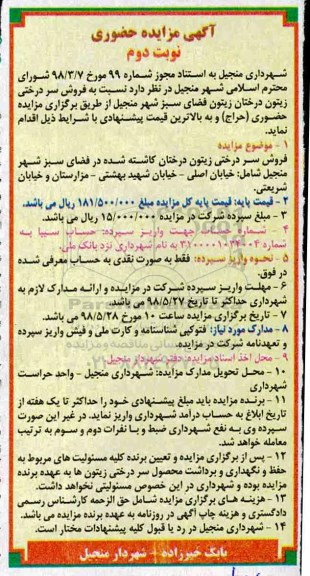 آگهی مزایده حضوری
نوبت دوم
شهرداری منجیل به استناد مجوز شماره ۹۹ مورخ ۹۸/۳/۷ شورای
محترم اسلامی شهر منجیل در نظر دارد نسبت به فروش سر درختی
زیتون درختان زیتون فضای سبز شهر منجیل از طریق برگزاری مزایده
حضوری (حراج) و به بالاترین قیمت پیشنهادی با شرایط ذیل اقدام
نماید.
۱ - موضوع مزایده
فروش سر درختی زیتون درختان کاشته شده در فضای سبز شهر
منجیل شامل: خیابان اصلی - خیابان شهید بهشتی - مزارستان و خیابان
شریعتی.
۲ - قیمت پایه: قیمت پایه کل مزایده مبلغ ۱۸۱/۵۰۰/۰۰۰ ریال می باشد.
۳ - مبلغ سپرده شرکت در مزایده ۱۵/۰۰۰/۰۰۰ ریال می باشد.
۴ - شماره حساب جهت واریز سپرده: حساب سیبا به
شماره ۳۱۰۰۰۰۱۰۳۴۰۰۴ به نام شهرداری نزد بانک ملی.
۵ - نحوه واریز سپرده: فقط به صورت نقدی به حساب معرفی شده
در فوق.
۶ - مهلت واریز سپرده شرکت در مزایده و ارائه مدارک لازم به
شهرداری حداکثر تا تاریخ ۹۸/۵/۲۷ می باشد.
۷ - تاریخ برگزاری مزایده ساعت ۱۰ مورخ ۹۸/۵/۲۸ می باشد.
۸ - مدارک مورد نیاز: فتوکپی شناسنامه و کارت ملی و فیش واریز سپرده
و تعهدنامه شرکت در مزایده.
۹ - محل اخذ اسناد مزایده: دفتر شهردار منجیل.
۱۰ - محل تحویل مدارک مزایده: شهرداری منجیل - واحد حراست
شهرداری
۱۱ - برنده مزایده باید مبلغ پیشنهادی خود را حداکثر تا یک هفته از
تاریخ ابلاغ به حساب درآمد شهرداری واریز نماید. در غیر این صورت
سپرده وی به نفع شهرداری ضبط و با نفرات دوم و سوم به ترتیب
معامله خواهد شد.
۱۲ - پس از برگزاری مزایده و تعیین برنده کلیه مسئولیت های مربوط به
حفظ و نگهداری و برداشت محصول سر درختی زیتون ها به عهده برنده
مزایده بوده و شهرداری در این خصوص مسئولیتی نخواهد داشت.
۱۳ - هزینه های برگزاری مزایده شامل حق الزحمه کارشناس رسمی
دادگستری و هزینه چاپ آگهی در روزنامه به عهده برنده مزایده می باشد.
۱۴ - شهرداری منجیل در رد یا قبول کلیه پیشنهادات مختار است.
بابک خیرزاده - شهردار منجیل